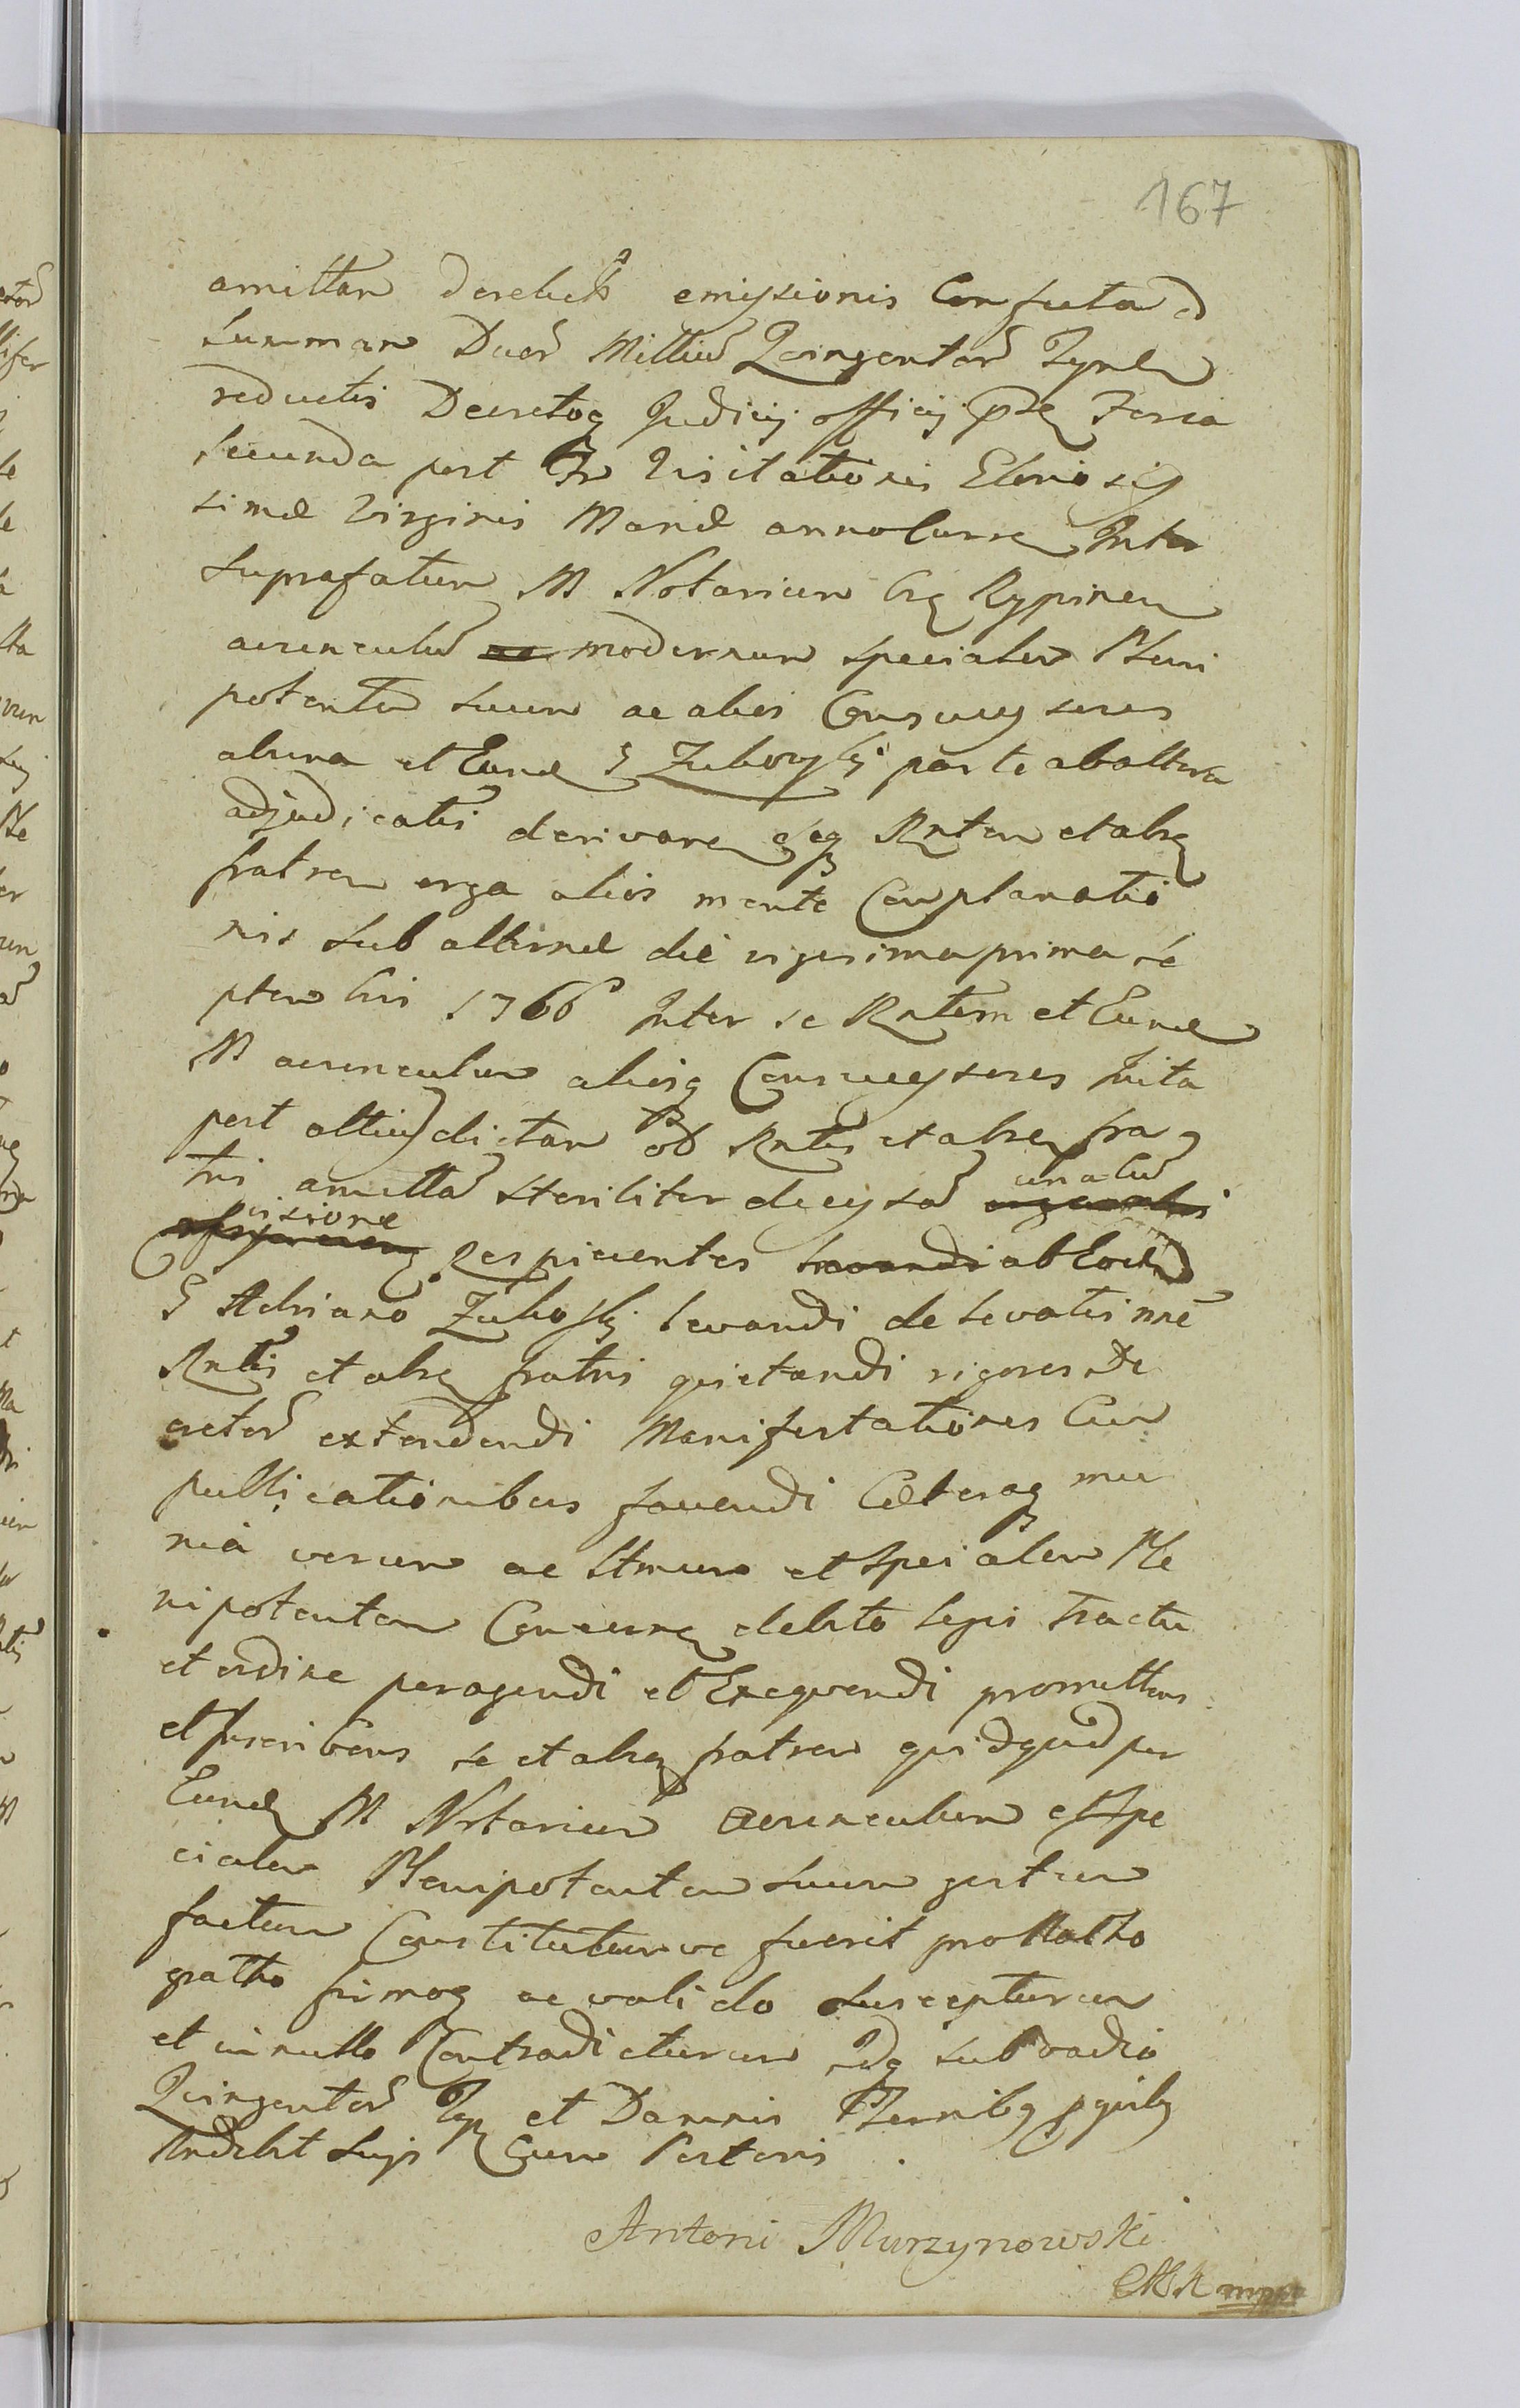 167
amittam derelicto emissionis Confecta ad
Summam Duor Milliū Quingentor Tynf
reductis Decretoq Judicij officij Feria
Secunda post Visitationis Glorio sis
simæ Virginis Mariæ anno Curren Inter
Suprafatum M Notarium Rypinen
avunculū modernum specialem Pleni
potentē suum ac alios Consuccessores
ab una et Eund G Zubows̄ki parte ab altera
adjudicatis derivaren Rntem et absq
fratrem erga alios mente Complanatio
nis sub alternæ die vigesima prima Se
ptembris 1766 Inter se Rntem et Eund
M avunculum aliosq Consuccessores Inita
post altius dictam ob Rntis et absen fra
tri amittā steriliter decessā unalū
visione Respicientes ab Eodē
G Adriano Zuboski levandi de levatis nne
Rntis et absq fratris quietandi rigores De
cretor extendendi Manifestationes Cum
publicationibus favendi Cæteraq mu
nia verum ac ltmum et Specialem Ple
nipotentem Concernen debito legis tractu
et ordine peragendi et Exequendi promittens
et Inscribens se et absq fratrem quidquid per
Eund M Notarium avunculum et Spe
cialem Plenipotentem Suum gestum
factum Constitutumve fuerit pro
gratto firmoq ac valido Suscepturum
et in nullo Contradicturum Idq sub vadio
Quingentor Tyn et Damnis Tternibq pquibq
Indebit Lujs Cum Partoris.
Antoni Murzynowski
mppa